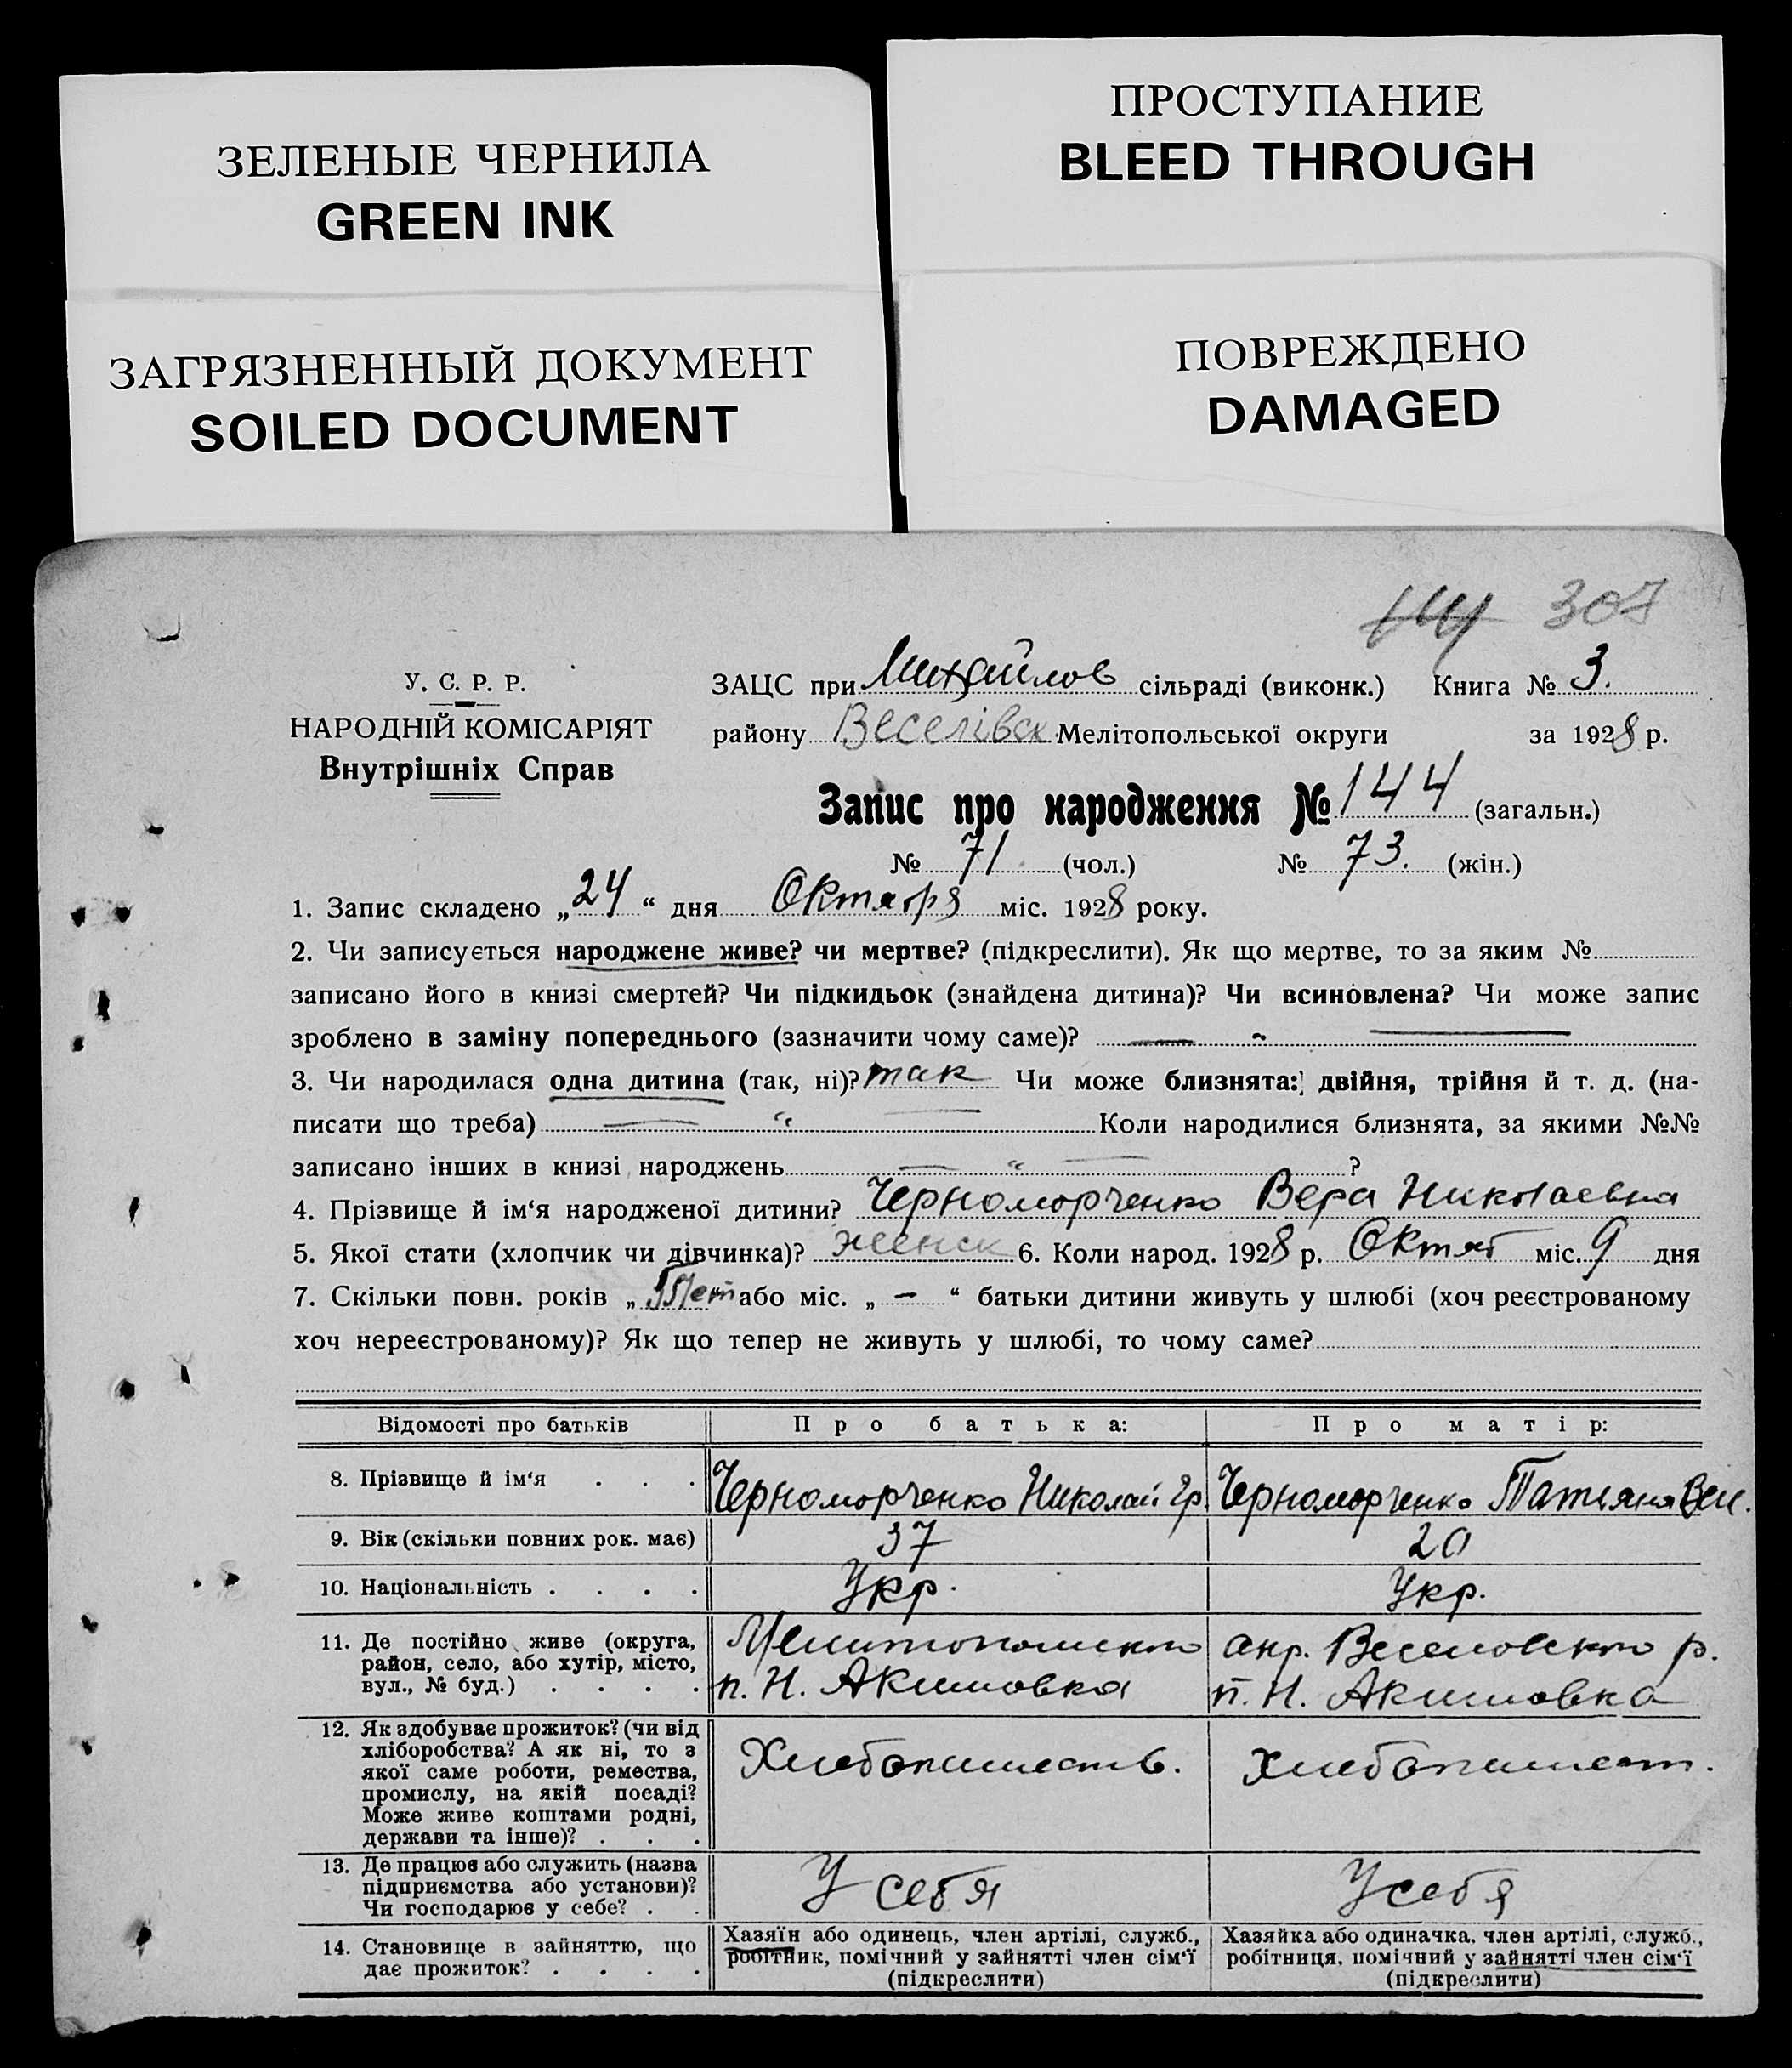 ЗЕЛЕНЫЕ ЧЕРНИЛА
GREEN INK
ЗАГРЯЗНЕННЫЙ ДОКУМЕНТ
SOILED DOCUMENT
ПРОСТУПАНИЕ
BLEED THROUGH
ПОВРЕЖДЕНО
DAMAGED
307
У. С. Р. Р.
НАРОДНІЙ КОМІСАРІЯТ
Внутрішніх Справ
ЗАЦС при Михайлов сільраді (виконк.) Книга № 3.
району Веселівск Мелітопольської округи за 1928 р.
Запис про народження № 144 (загальн.)
№ 71 (чол.) № 73. (жін.)
1. Запис складено „24“ дня Октября міс. 1928 року.
2. Чи записується народжене живе? чи мертве? (підкреслити). Як що мертве, то за яким №
записано його в книзі смертей? Чи підкидьок (знайдена дитина)? Чи всиновлена? Чи може запис
зроблено в заміну попереднього (зазначити чому саме)? — „ —
3. Чи народилася одна дитина (так, ні)? так Чи може близнята: двійня, трійня й т. д. (на-
писати що треба) — “ — Коли народилися близнята, за якими №№
записано інших в книзі народжень — “ — ?
4. Прізвище й ім‘я народженої дитини? Черноморченко Вера Николаевна
5. Якої стати (хлопчик чи дівчинка)? женск 6. Коли народ. 1928 р. Октяб міс. 9 дня
7. Скільки повн. років „ лет або міс. „ — “ батьки дитини живуть у шлюбі (хоч реєстрованому
хоч нереєстрованому)? Як що тепер не живуть у шлюбі, то чому саме?
Відомості про батьків Про батька: Про матір:
8. Прізвище й ім‘я . . . Черноморченко Николай Гр. Черноморченко Татьяна
9. Вік (скільки повних рок. має) 37 20
10. Національність . . . . Укр. Укр.
11. Де постійно живе (округа, Мелитопольского окр. Веселовского р.
район, село, або хутір, місто,
вул., № буд.) . . . . п. Н. Акимовка п. Н. Акимовка
12. Як здобуває прожиток? (чи від
хліборобства? А як ні, то з
якої саме роботи, ремества, Хлебопашеств. Хлебопашест.
промислу, на якій посаді?
Може живе коштами родні,
держави та інше)? . . .
13. Де працює або служить (назва
підприємства або установи)? У себя У себя
Чи господарює у себе? . .
14. Становище в зайняттю, що
дає прожиток? . . . .
Хазяїн або одинець, член артілі, служб.,
робітник, помічний у зайнятті член сім‘ї
(підкреслити)
Хазяйка або одиначка, член артілі, служб.,
робітниця, помічний у зайнятті член сім‘ї
(підкреслити)